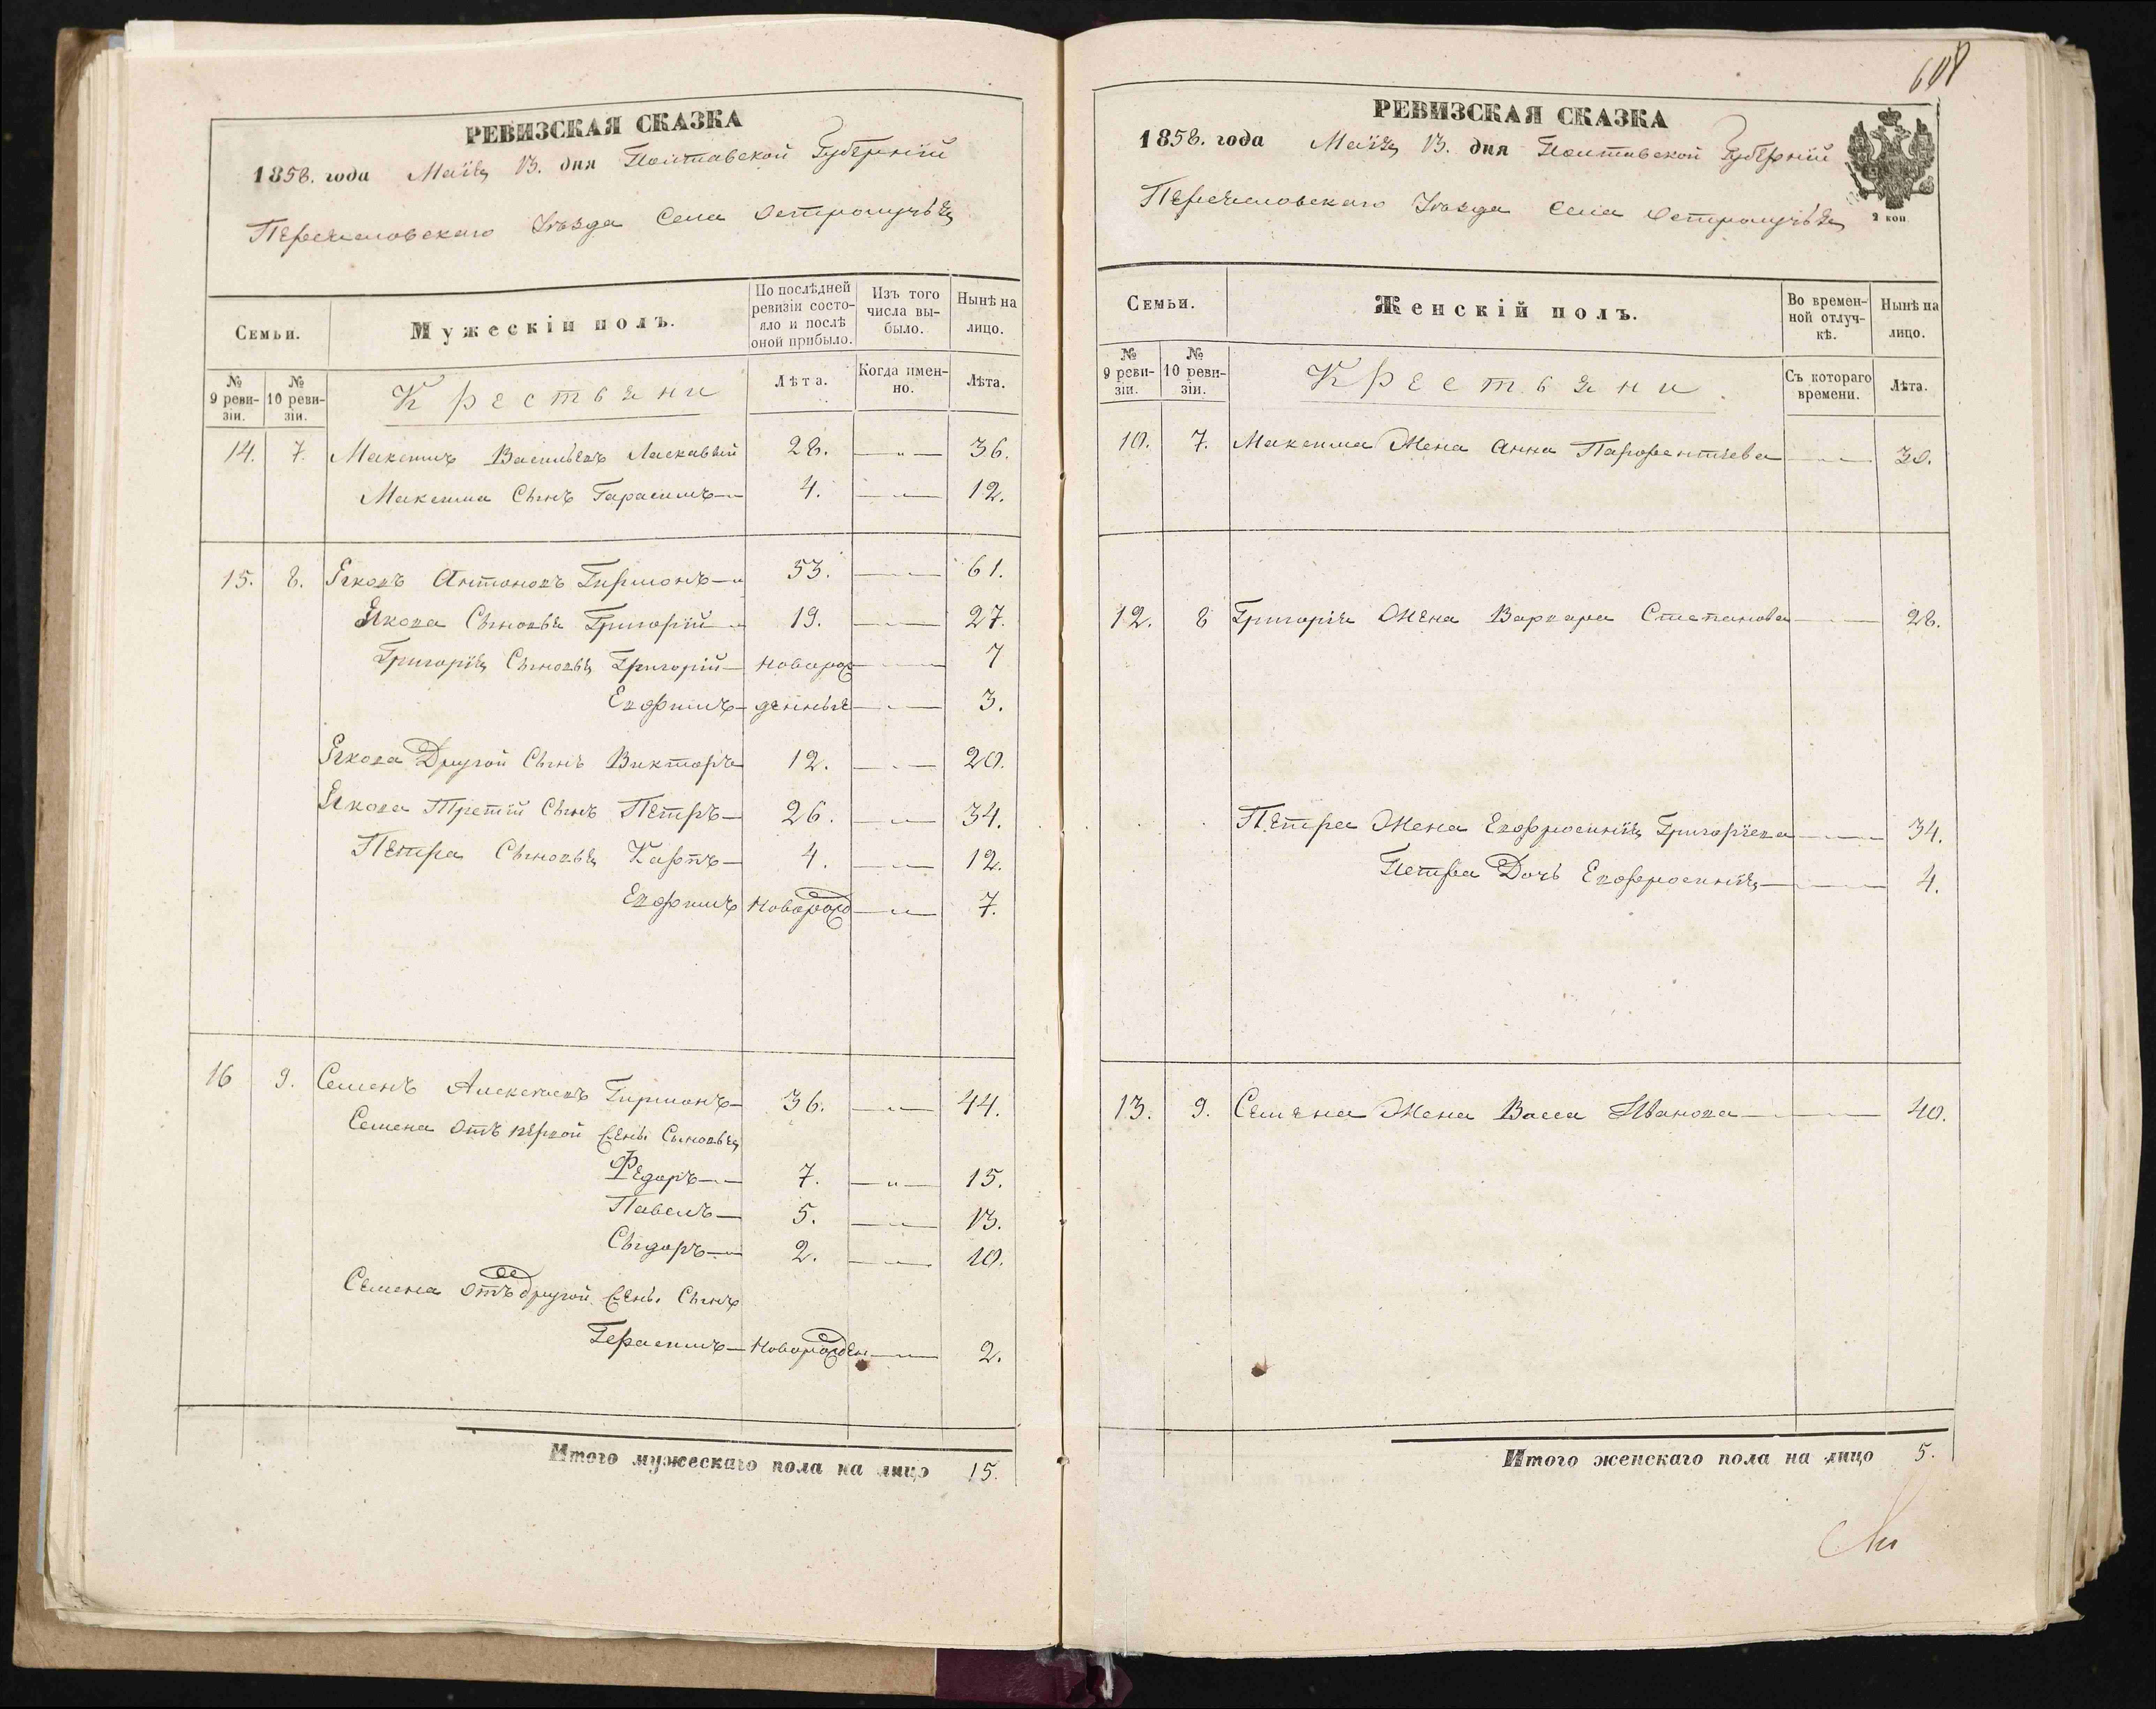 РЕВИЗСКАЯ СКАЗКА
1858. года Маія 13. дня Полтавской Губерніи
Переяславскаго Уѣзда Села Остролучья
Семьи.
Мужескій полъ.
По послѣдней ревизіи состояло и послѣ оной прибыло.
Изъ того числа выбыло.
Нынѣ на лицо.
№ 9 ревизіи.
№ 10 ревизіи.
Крестьяни
Лѣта.
Когда именно.
Лѣта.
14. 7. Максимъ Васильевъ Ласкавый 28. 36.
Максима Сынъ Гарасимъ 4. 12.
15. 8. Яковъ Антоновъ Гирманъ 53. 61.
Якова Сыновья Григорій 19. 27.
Григорія Сыновья Григорій новорож 7
Евфимъ денные 3.
Якова Другой Сынъ Викторъ 12. 20.
Якова Третій Сынъ Петръ 26. 34.
Петра Сыновья Карпъ 4. 12.
Евфимъ Новорожд 7.
16 9. Семенъ Алексѣевъ Гирманъ 36. 44.
Семена отъ первой жены Сыновья
Федоръ 7. 15.
Павелъ 5. 13.
Сыдоръ 2. 10.
Семена отъ другой жены Сынъ
Герасимъ Новорожден 2.
Итого мужескаго пола на лицо 15.
608
РЕВИЗСКАЯ СКАЗКА
1858. года Маія 13. дня Полтавской Губерніи
Переяславскаго Уѣзда Села Остролучья
2 коп
Семьи.
Женскій полъ.
Во временной отлучкѣ.
Нынѣ на лицо.
№ 9 ревизіи.
№ 10 ревизіи.
Крестьяни.
Съ котораго времени.
Лѣта.
10. 7. Максима Жена Анна Парфентіева 30.
12. 8 Григорія Жена Варвара Степанова 28.
Петра Жена Евфросинія Григоріева 34.
Петра Дочь Евфросинія 4.
13. 9. Семена Жена Васса Иванова 40.
Итого женскаго пола на лицо 5.